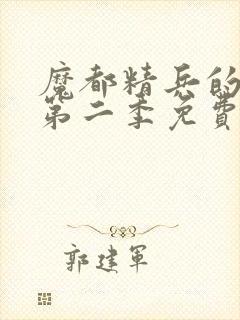 魔都精兵的
第二季免費
郭建軍